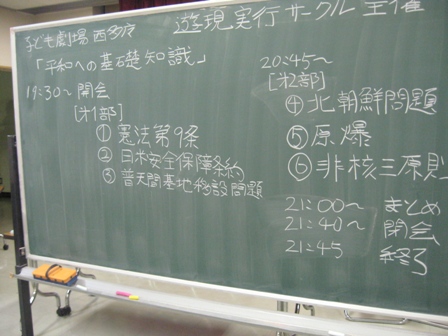 子ども劇場西多摩 遊現実行サークル主催
「平和への基礎知識」
19:30~ 開会
[オ1部]
① 憲法第9条
② 日米安全保障条約
③ 普天間基地移設問題
20:45~
[オ2部]
④ 北朝鮮問題
⑤ 原爆
⑥ 非核三原則
21:00~ まとめ
21:40~ 閉会
21:45 終了